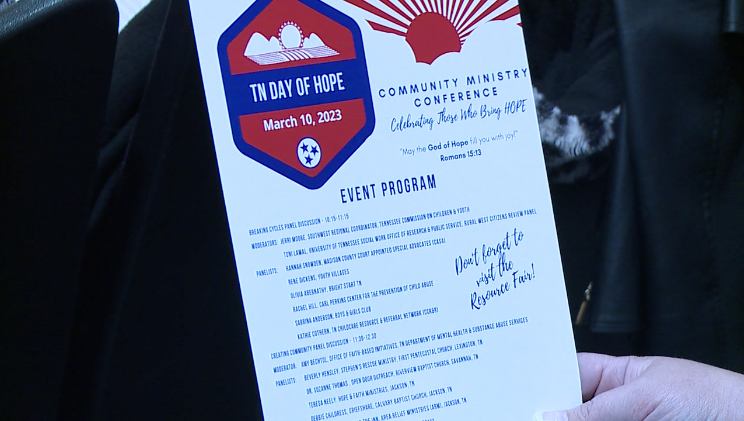 TN DAY OF HOPE
March 10, 2023
COMMUNITY MINISTRY
CONFERENCE
Celebrating Those Who Bring HOPE
"May the God of Hope fill you with joy!"
Romans 15:13
EVENT PROGRAM
BREAKING CYCLES PANEL DISCUSSION - 10:15-11:15
MODERATORS: JERRI MOORE, SOUTHWEST REGIONAL COORDINATOR, TENNESSEE COMMISSION ON CHILDREN & YOUTH
TONI LAWAL, UNIVERSITY OF TENNESSEE SOCIAL WORK OFFICE OF RESEARCH & PUBLIC SERVICE, RURAL WEST CITIZENS REVIEW PANEL
PANELISTS: HANNAH SNOWDEN, MADISON COUNTY COURT APPOINTED SPECIAL ADVOCATES (CASA)
BENE DICKENS, YOUTH VILLAGES
OLIVIA ABERNATHY, BRIGHT START TN
RACHEL HILL, CARL PERKINS CENTER FOR THE PREVENTION OF CHILD ABUSE
SABRINA ANDERSON, BOYS & GIRLS CLUB
KATHIE COTHERN, TN CHILDCARE RESOURCE & REFERRAL NETWORK (CCR&R)
Don't forget to
visit the
Resource Fair!
CREATING COMMUNITY PANEL DISCUSSION - 11:30-12:30
MODERATOR: AMY BECHTOL, OFFICE OF FAITH-BASED INITIATIVES, TN DEPARTMENT OF MENTAL HEALTH & SUBSTANCE ABUSE SERVICES
PANELISTS: BEVERLY HENSLEY, STEPHEN'S RESCUE MINISTRY, FIRST PENTECOSTAL CHURCH, LEXINGTON, TN
DR. SUZANNE THOMAS, OPEN DOOR OUTREACH, RIVERVIEW BAPTIST CHURCH, SAVANNAH, TN
TERESA NEELY, HOPE & FAITH MINISTRIES, JACKSON, TN
DEBBIE CHILDRESS, CHEFSHARE, CALVARY BAPTIST CHURCH, JACKSON, TN
THE INN, AREA RELIEF MINISTRIES (ARM), JACKSON, TN